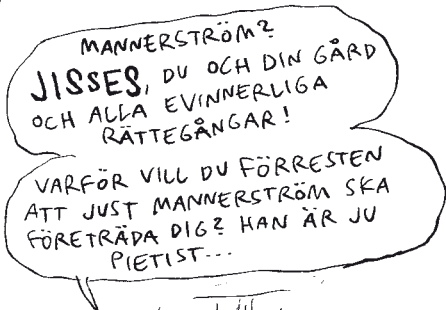 MANNERSTRÖM?
JISSES, DU OCH DIN GÅRD
OCH ALLA EVINNERLIGA
RÄTTEGÅNGAR!
VARFÖR VILL DU FÖRRESTEN
ATT JUST MANNERSTRÖM SKA
FÖRETRÄDA DIG? HAN ÄR JU
PIETIST...